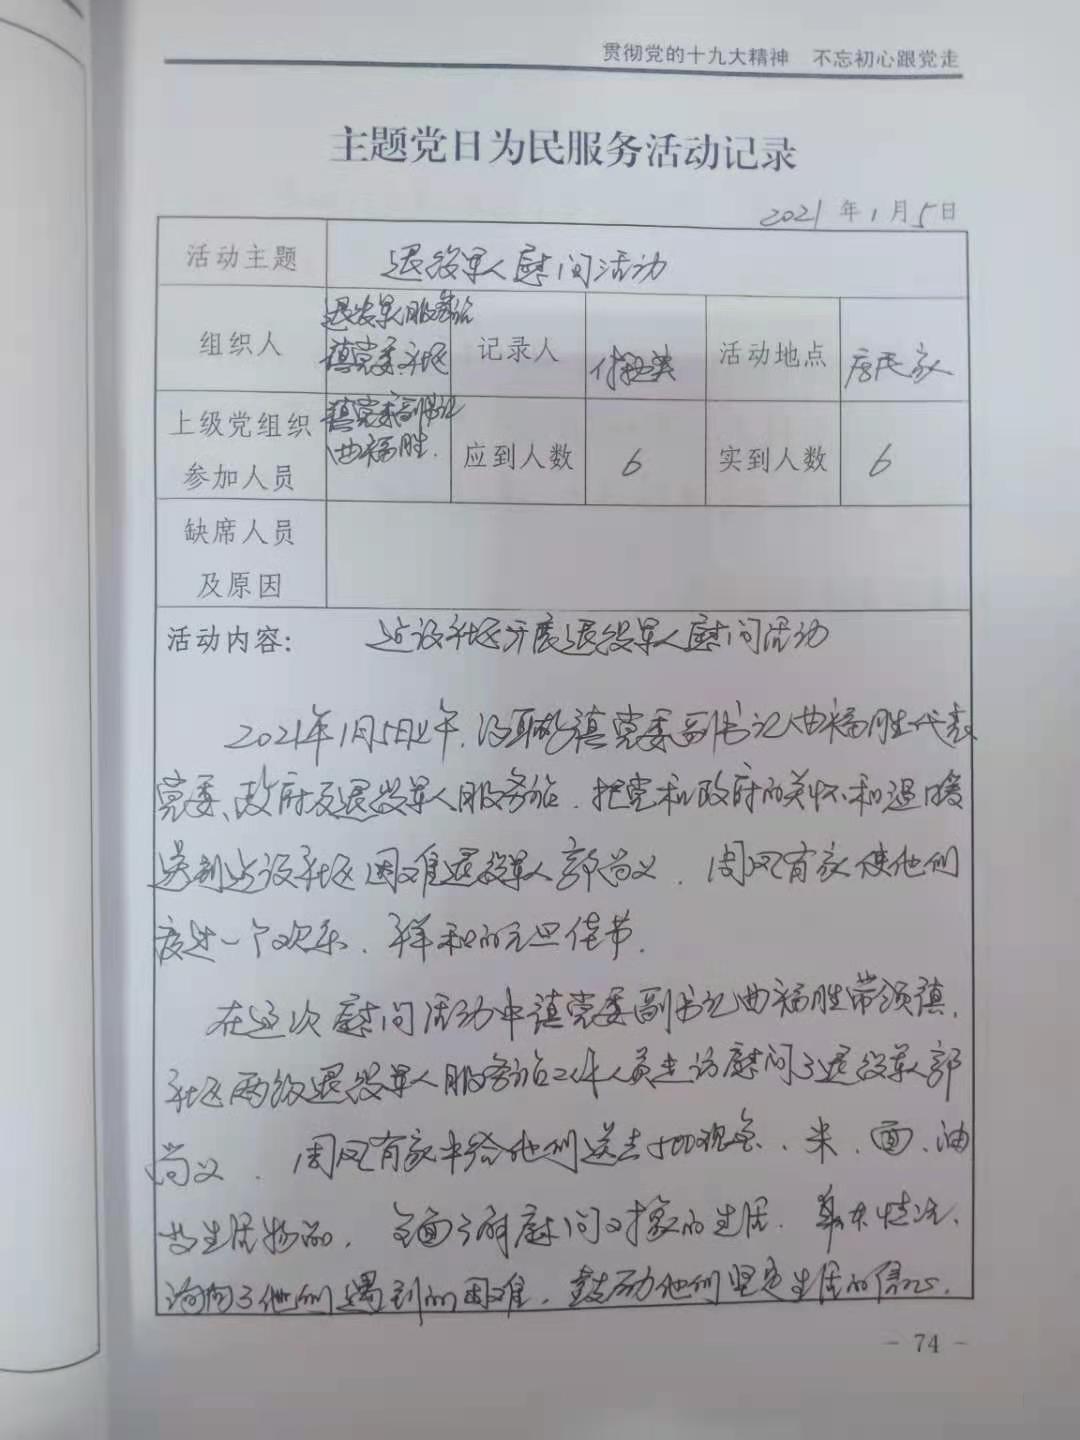 贯彻党的十九大精神 不忘初心跟党走
主题党日为民服务活动记录
2021年1月5日
活动主题 退役军人慰问活动
组织人 退役军人服务站 镇党委 社区 记录人 活动地点 居民家
上级党组织参加人员 镇党委副书记 曲福胜. 应到人数 6 实到人数 6
缺席人员及原因
活动内容: 社区开展退役军人慰问活动
2021年1月5日上午, 镇党委副书记曲福胜代表
党委、政府及退役军人服务站, 把党和政府的关怀和温暖
送到 社区困难退役军人郭尚义、周凤有家使他们
度过一个欢乐、祥和的元旦佳节.
在这次慰问活动中镇党委副书记曲福胜带领镇、
社区两级退役军人服务站工作人员走访慰问了退役军人郭
尚义、周凤有家中给他们送去 现金、米、面、油
等生活物品, 全面了解慰问对象的生活、 情况、
询问了他们遇到的困难, 鼓励他们坚定生活的信心.
- 74 -